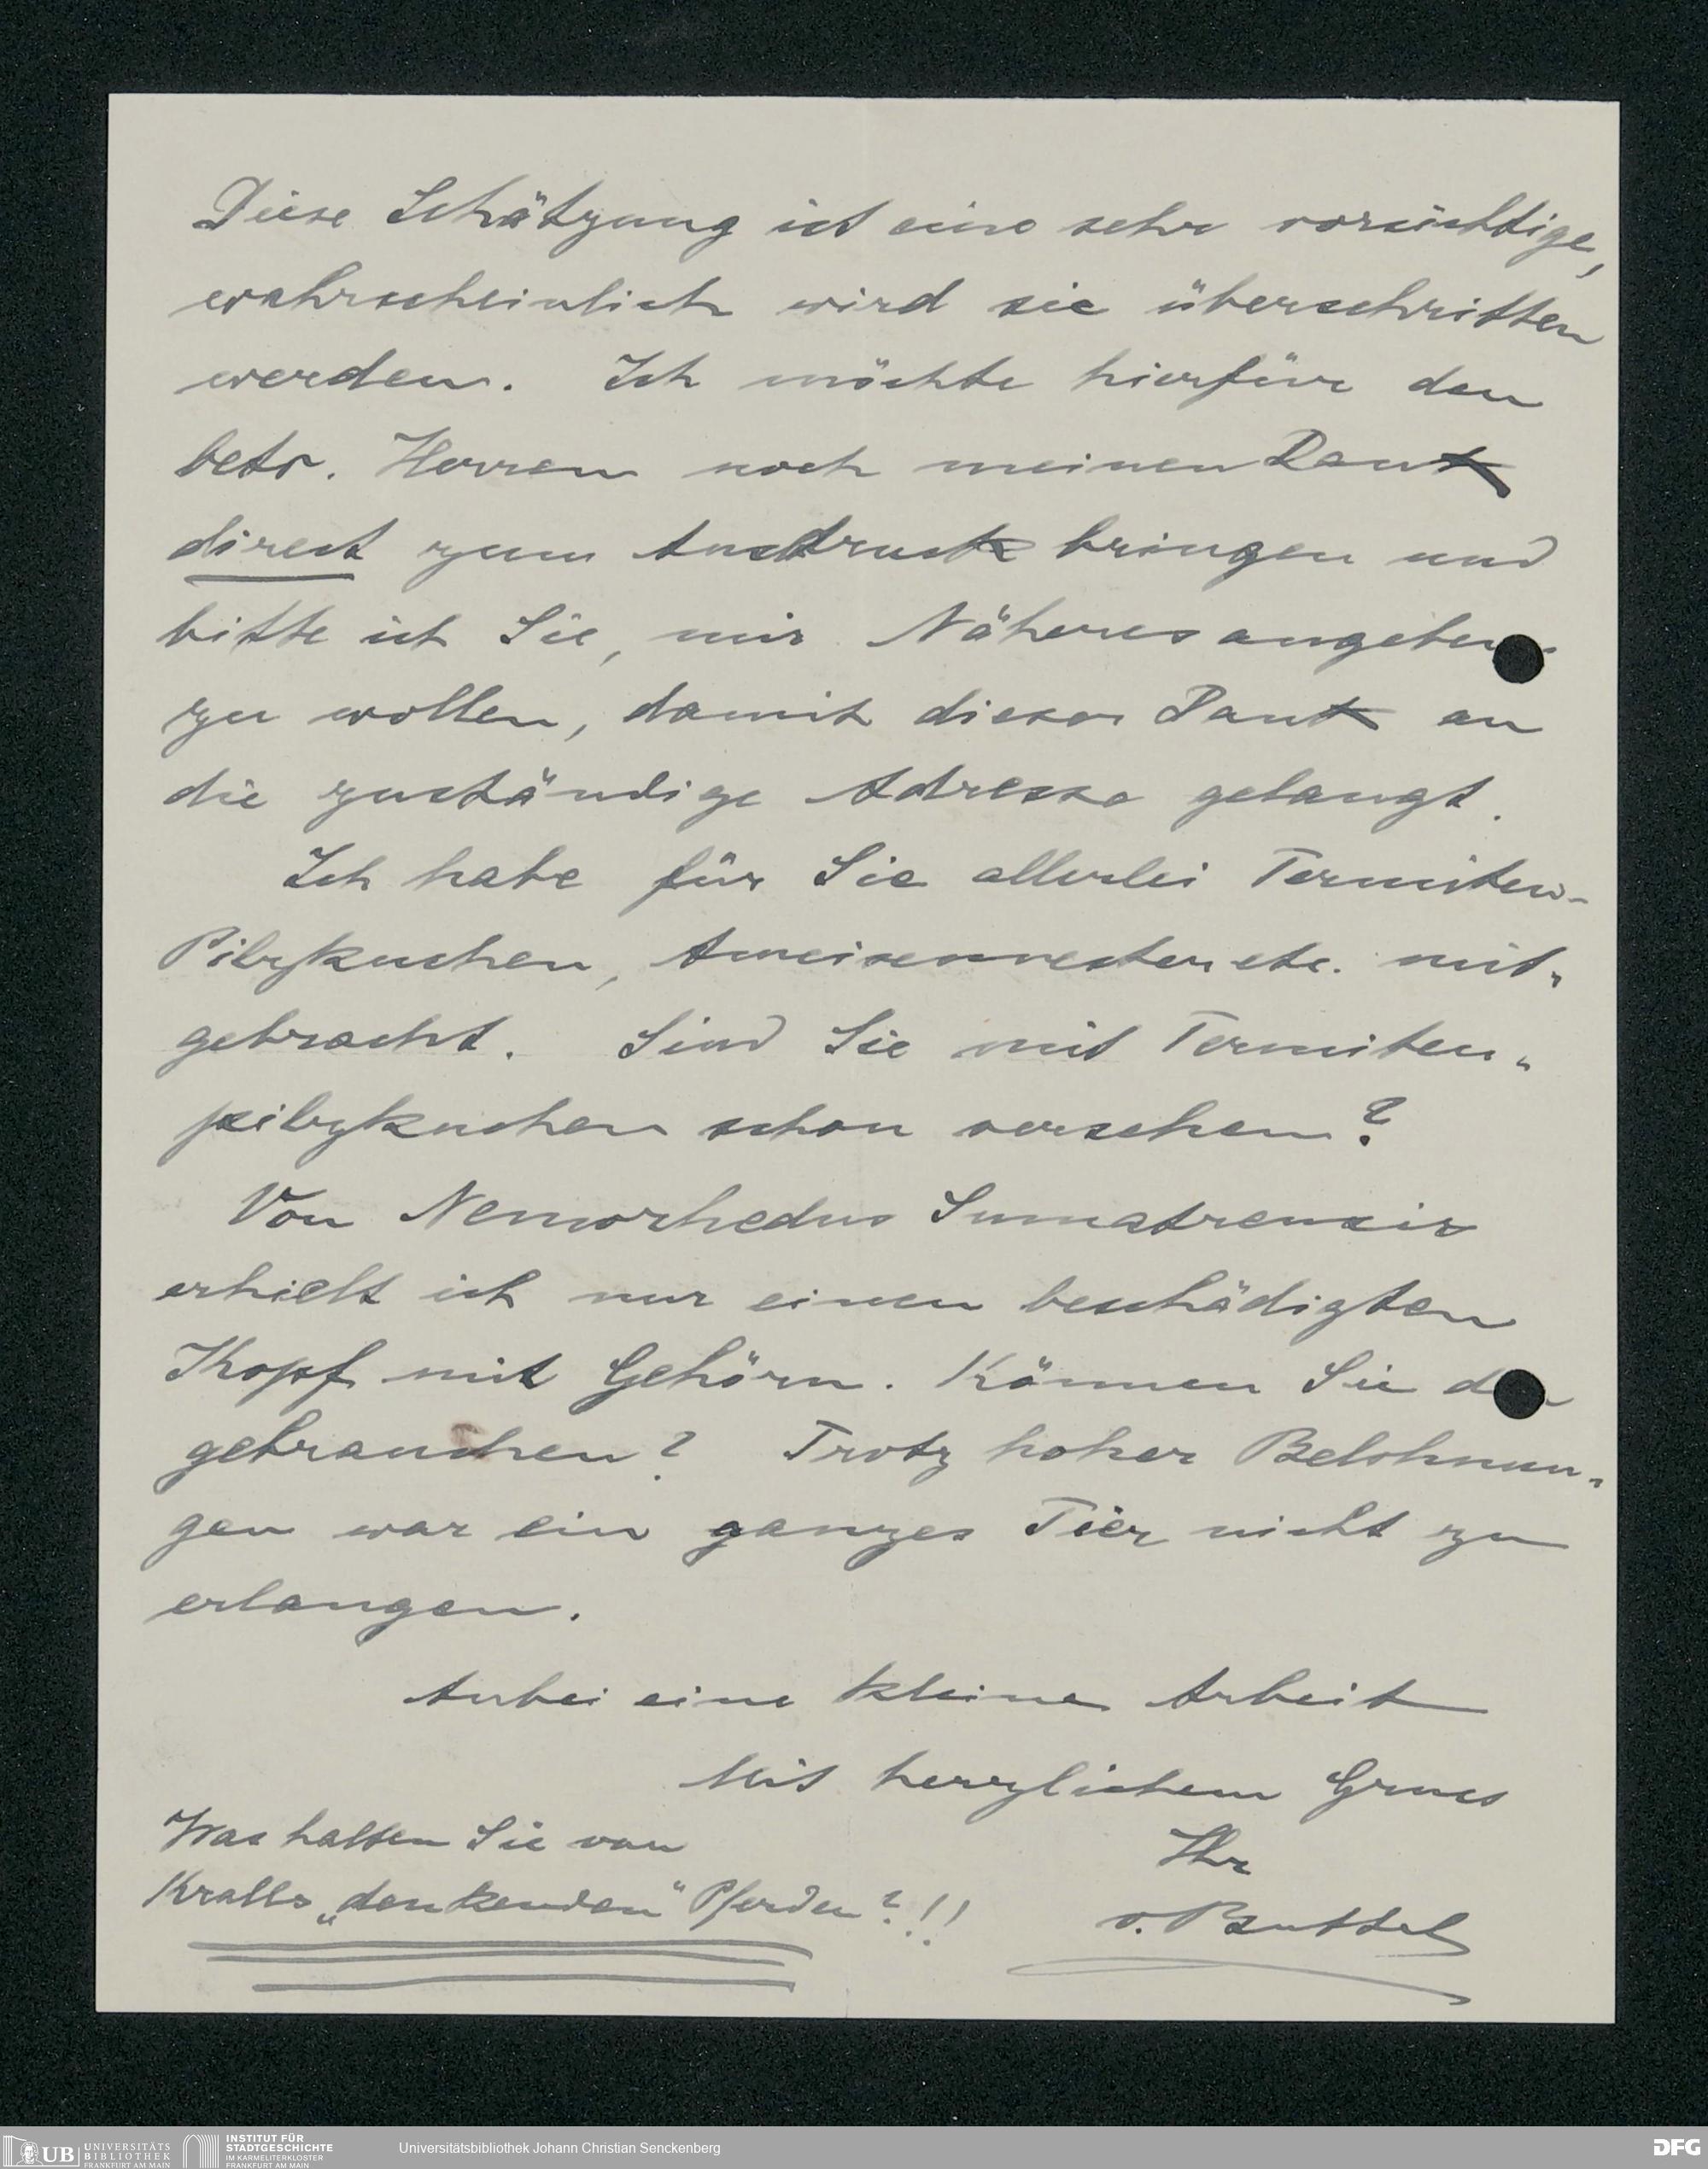 Diese Schätzung ist eine sehr vorsichtige,
wahrscheinlich wird sie überschritten
werden. Ich möchte hierfür den
betr. Herren noch meinen Dank
direct zum Ausdruck bringen und
bitte ich Sie, mir Näheres angeben
zu wollen, damit dieser Dank an
die zuständige Adresse gelangt.
Ich habe für Sie allerlei Termiten-
Pilzkuchen, Ameisennester etc. mit-
gebracht. Sind Sie mit Termiten-
pilzkuchen schon versehen?
Von Nemorhedus Sumatrensis
erhielt ich nur einen beschädigten
Kopf mit Gehörn. Können Sie
gebrauchen? Trotz hoher Belohnun-
gen war ein ganzes Tier nicht zu
erlangen.
Anbei eine kleine Arbeit
Mit herzlichem Gruss
Ihr
v. Buttel
Was halten Sie von
Kralls „denkenden" Pferden?!!
UB UNIVERSITÄTS
BIBLIOTHEK
FRANKFURT AM MAIN
INSTITUT FÜR
STADTGESCHICHTE
IM KARMELITERKLOSTER
FRANKFURT AM MAIN
Universitätsbibliothek Johann Christian Senckenberg
DFG